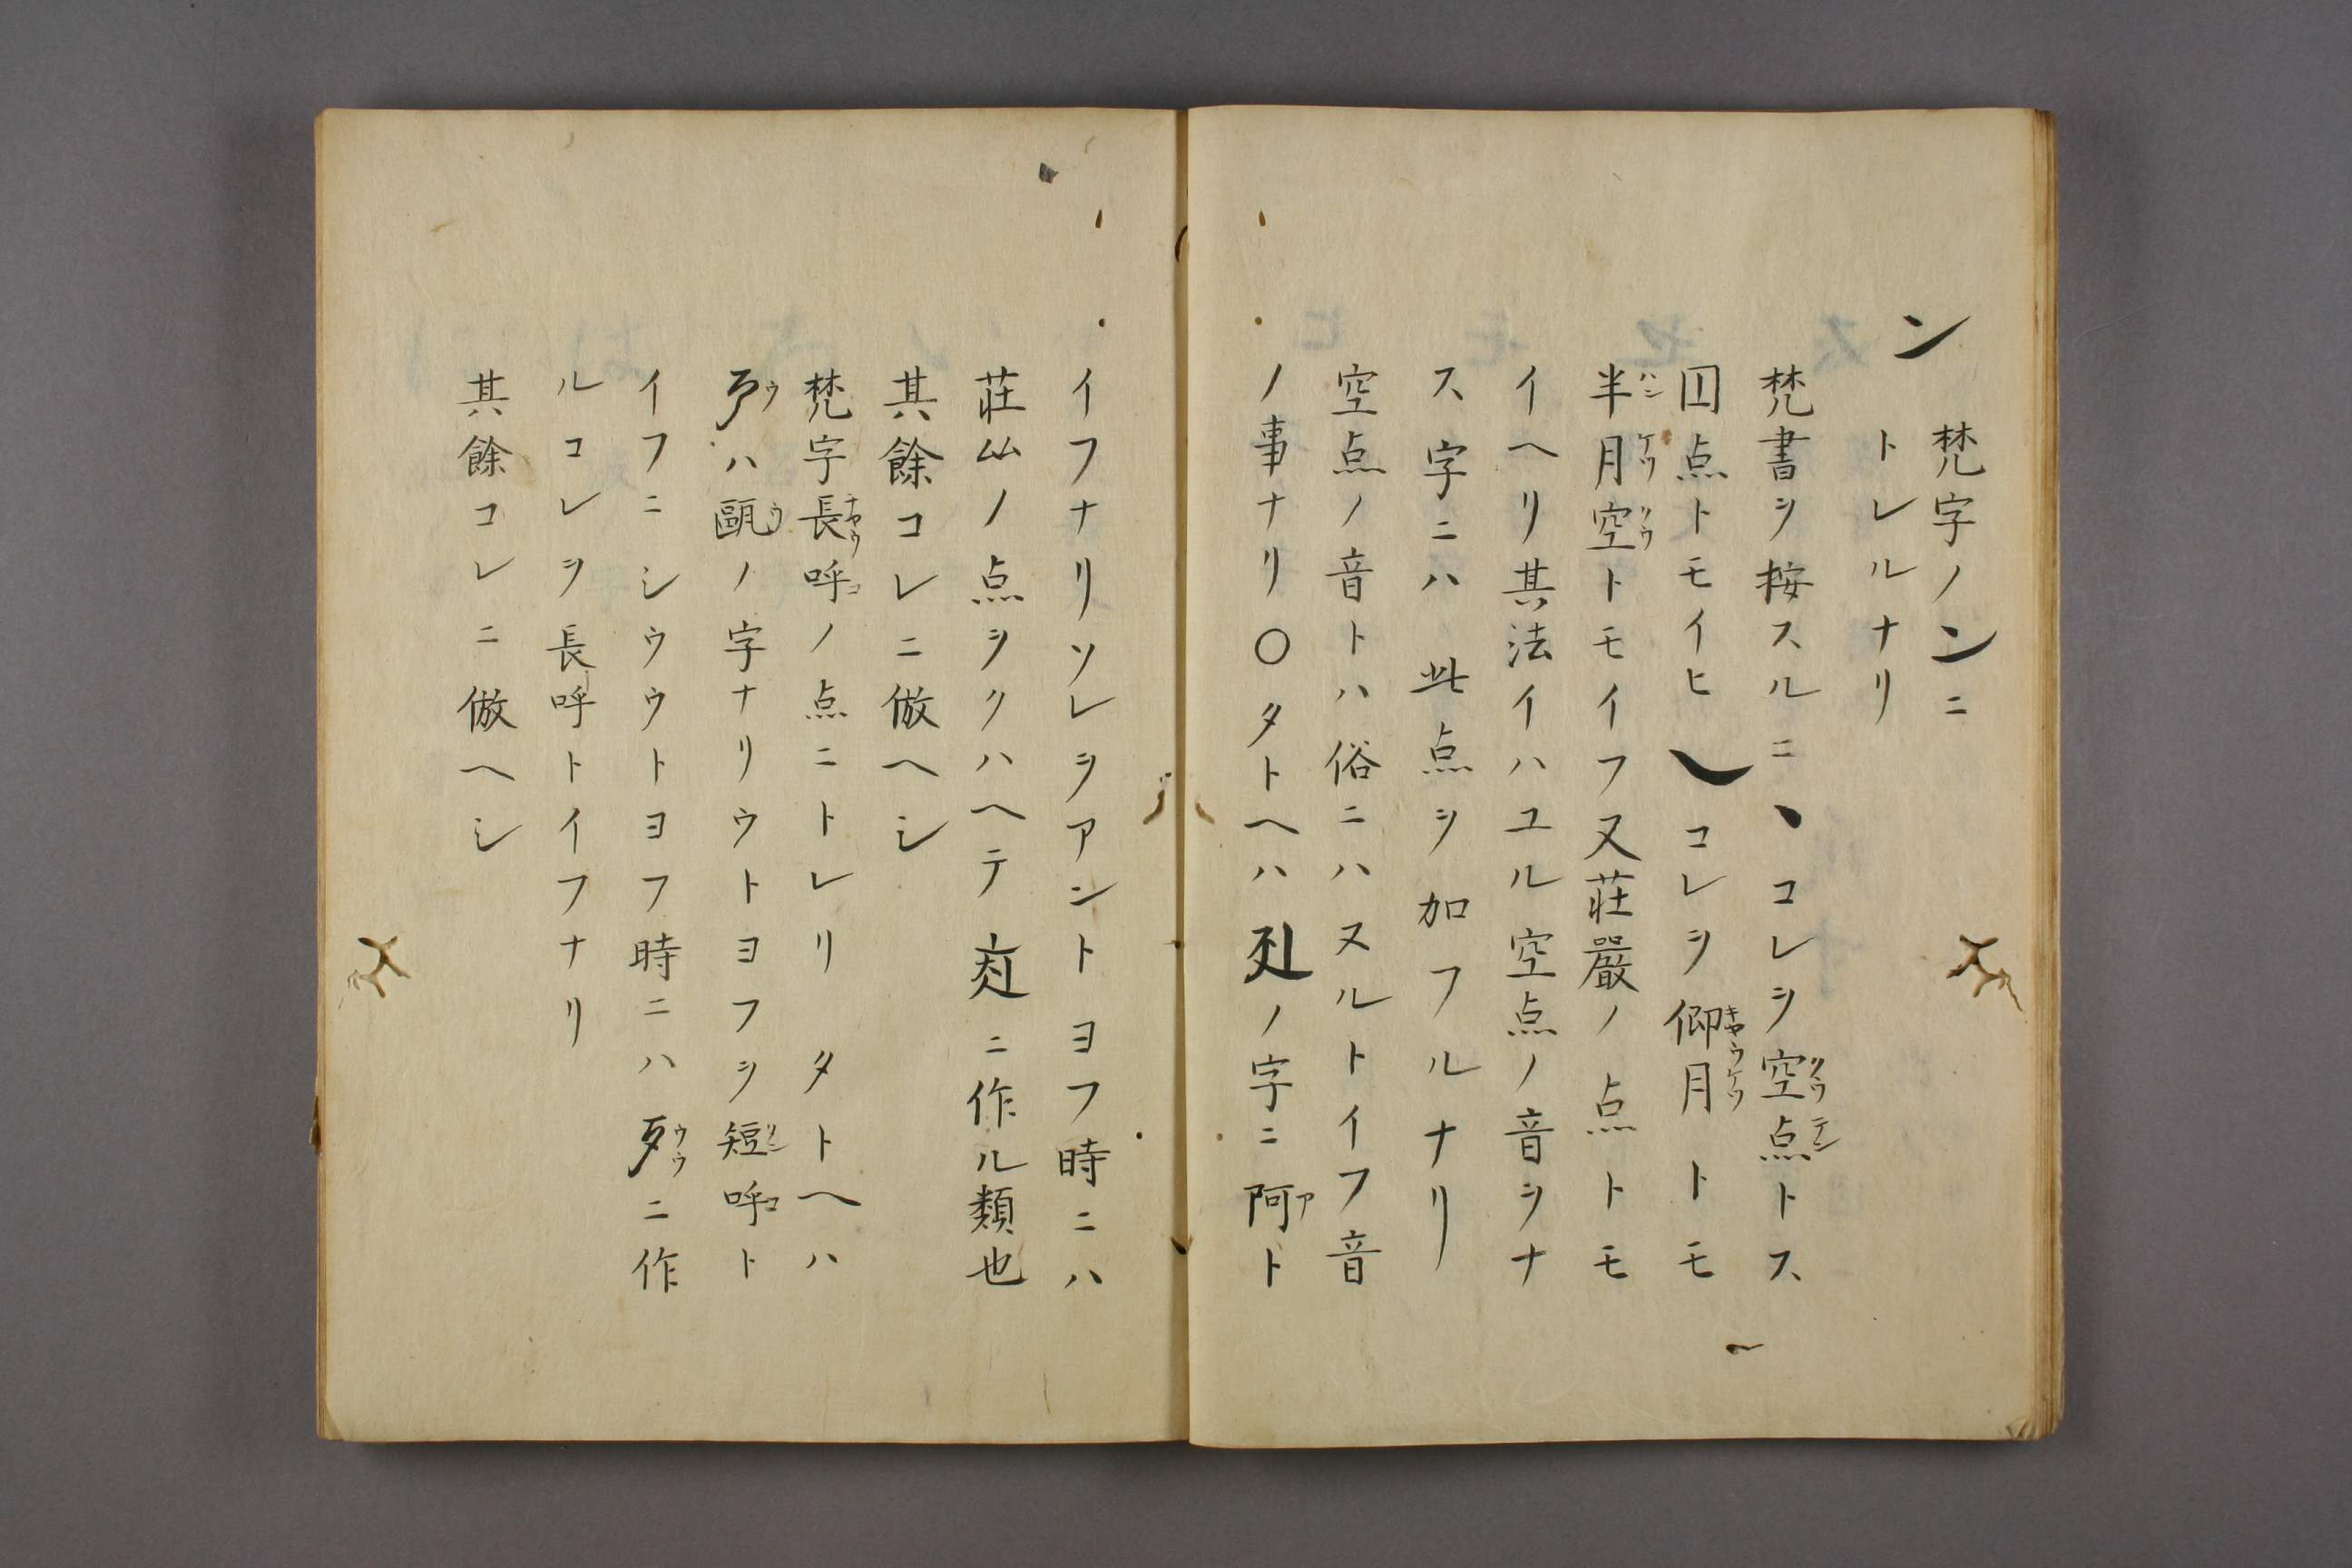 ン 梵字ノンニ
トレルナリ
梵書ヲ按スルニ丶コレヲ空点トス
囗点トモイヒ コレヲ仰月トモ
半月空トモイフ又荘嚴ノ点トモ
イヘリ其法イハユル空点ノ音ヲナ
ス字ニハ此点ヲ加フルナリ
空点ノ音トハ俗ニハヌルトイフ音
ノ事ナリ〇タトヘハ ノ字ニ阿ト
イフナリソレヲアントヨフ時ニハ
荘厶ノ点ヲクハヘテ ニ作ル類也
其餘コレニ倣ヘシ
梵字長呼ノ点ニトレリ タトヘハ
ハ甌ノ字ナリウトヨフヲ短呼ト
イフニシウウトヨフ時ニハ ニ作
ルコレヲ長呼トイフナリ
其餘コレニ倣ヘシ